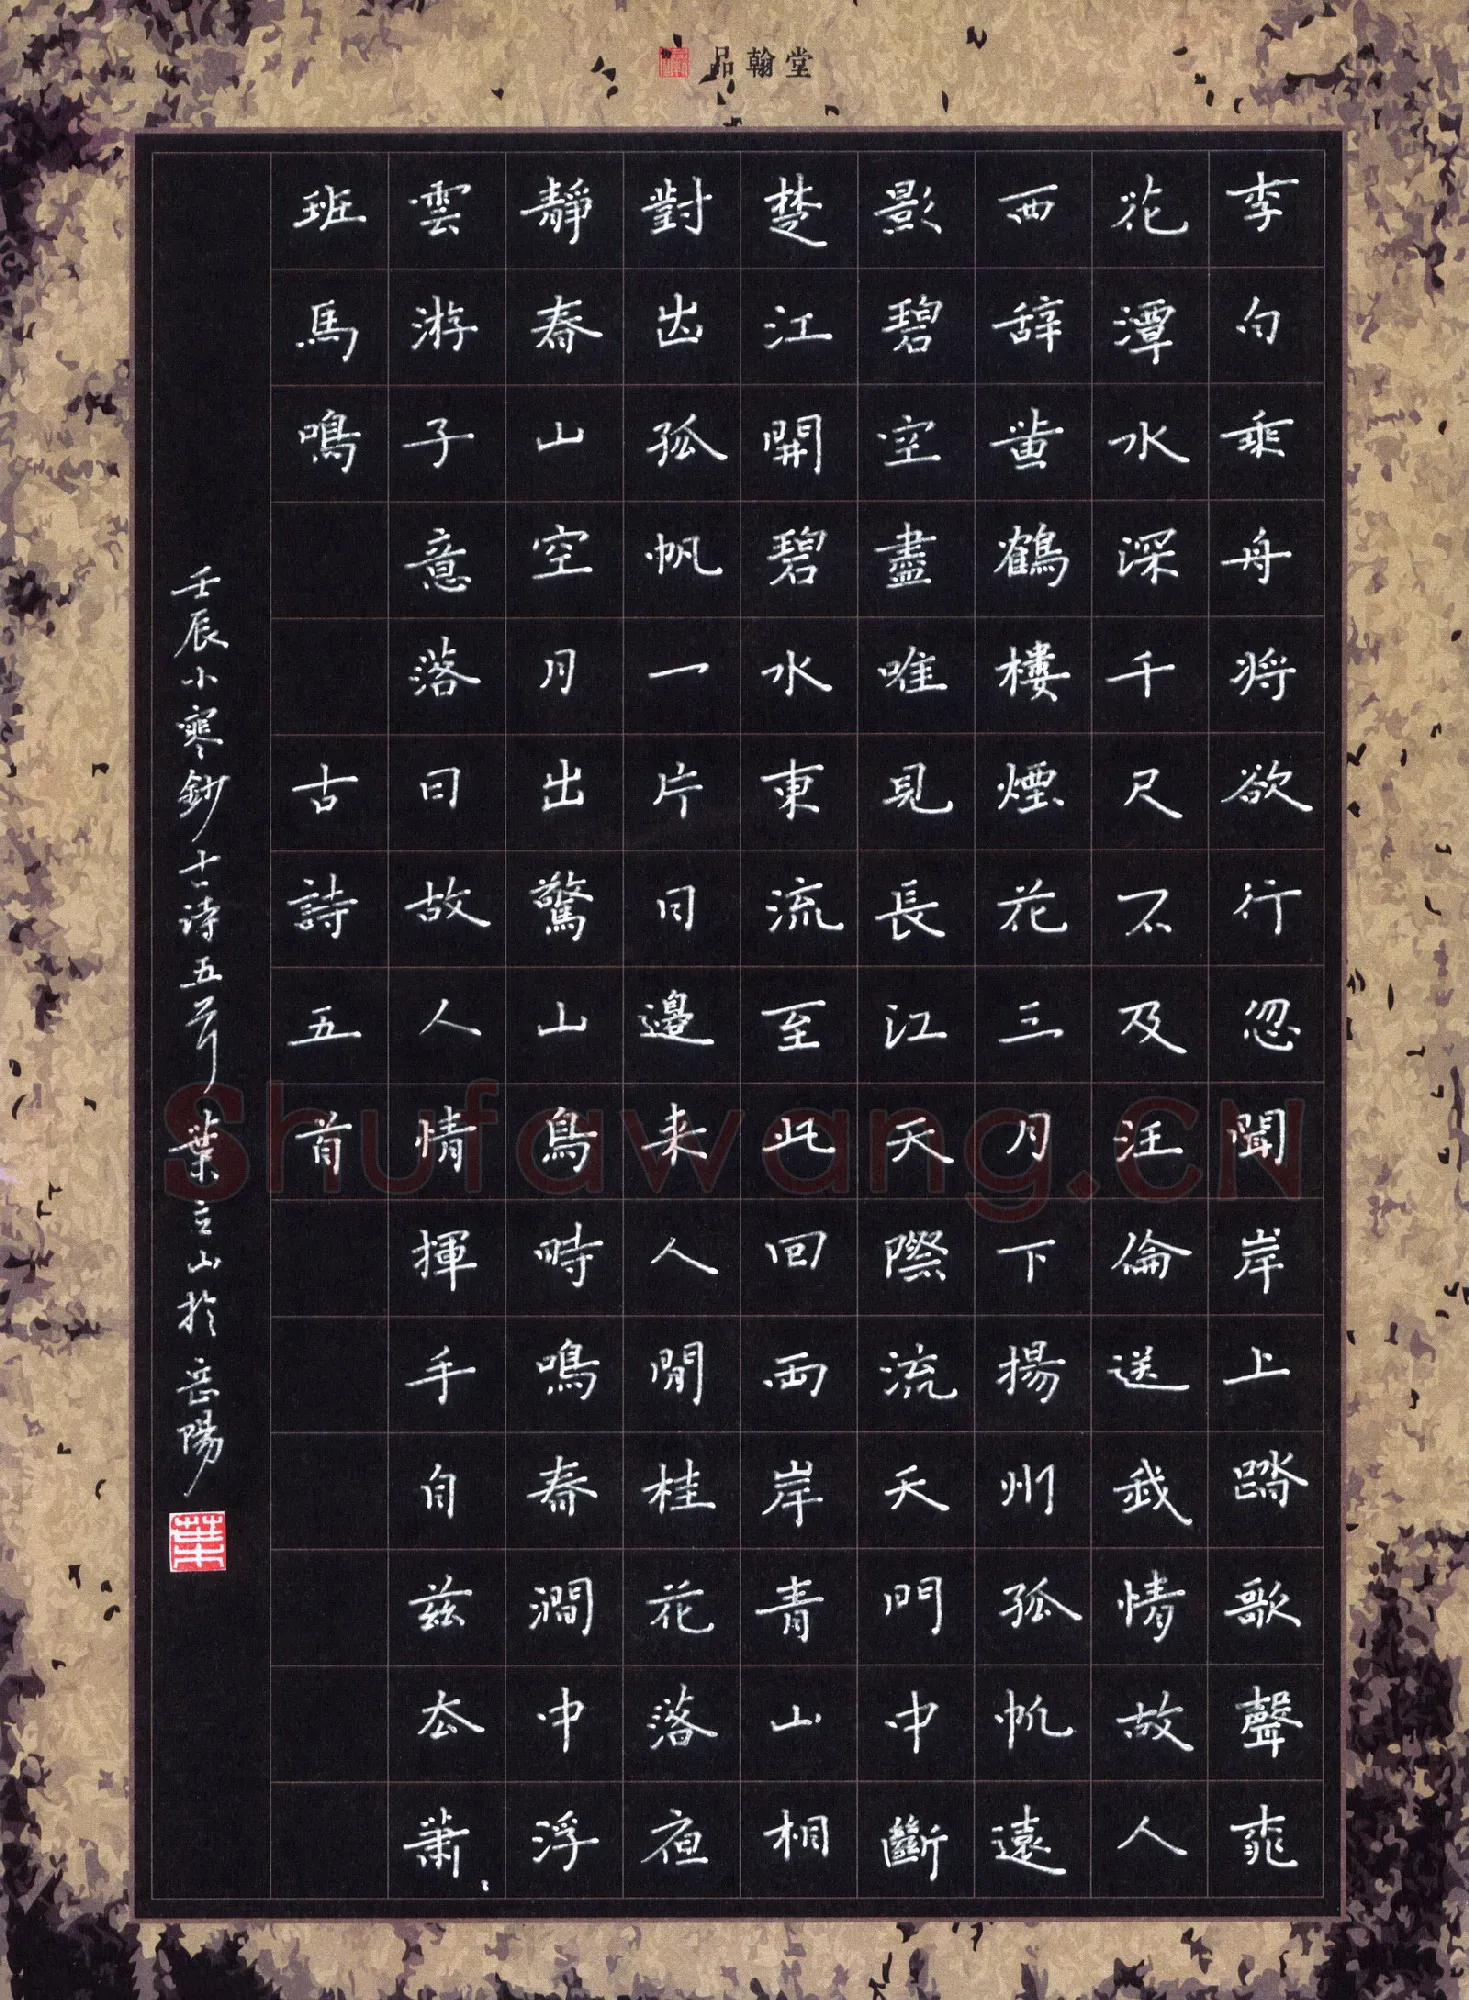 品翰堂
李白乘舟将欲行忽聞岸上踏歌聲桃
花潭水深千尺不及汪倫送我情故人
西辞黃鶴樓煙花三月下揚州孤帆遠
影碧空盡唯見長江天際流天門中斷
楚江開碧水東流至此回兩岸青山相
對出孤帆一片日邊来人閒桂花落夜
靜春山空月出驚山鳥時鳴春澗中浮
雲游子意落日故人情揮手自兹去蕭
班馬鳴 古詩五首
壬辰小寒鈔古诗五首 葉立山於岳陽
葉
Shufawang.CN